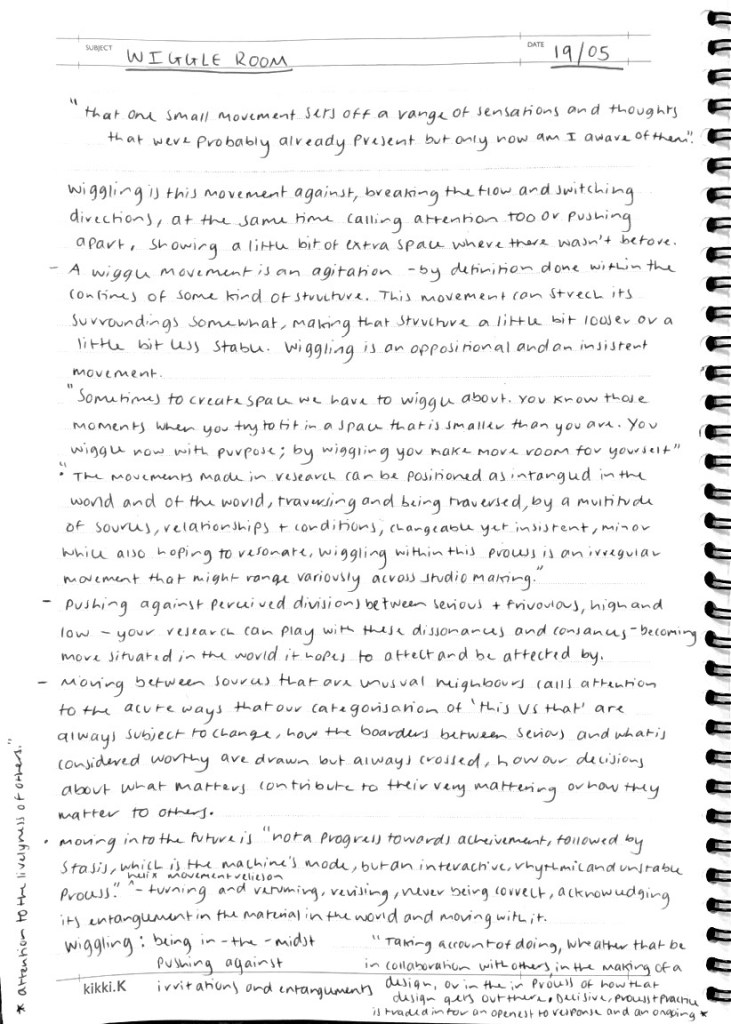 SUBJECT WIGGLE ROOM DATE 19/05
"that one small movement sets off a range of sensations and thoughts
that were probably already present but only now am I aware of them".
Wiggling is this movement against, breaking the flow and switching
directions, at the same time calling attention too or pushing
apart, showing a little bit of extra space where there wasn't before.
- A wiggle movement is an agitation - by definition done within the
confines of some kind of structure. This movement can strech its
surroundings somewhat, making that structure a little bit looser or a
little bit less stable. Wiggling is an oppositional and an insistent
movement.
"Sometimes to create space we have to wiggle about. You know those
moments when you try to fit in a space that is smaller than you are. You
wiggle now with purpose; by wiggling you make more room for yourself"
• "The movements made in research can be positioned as intangled in the
world and of the world, traversing and being traversed, by a multitude
of sources, relationships + conditions, changeable yet insistent, minor
while also hoping to resonate, wiggling within this process is an irregular
movement that might range variously across studio making."
- pushing against perceived divisions between serious + frivoulous, high and
low - your research can play with these dissonances and consances - becoming
more situated in the world it hopes to affect and be affected by.
- Moving between sources that are unusual neighbours calls attention
to the acute ways that our categorisation of 'this vs that' are
always subject to change, how the boarders between serious and what is
considered worthy are drawn but always crossed, how our decisions
about what matters contribute to their very mattering or how they
matter to others.
• moving into the future is "not a progress towards acheivement, followed by
stasis, which is the machine's mode, but an interactive, rhythmic and unstable
process." ^ - turning and returning, revising, never being correct, acknowledging
helix movement relies on
its entanglement in the material in the world and moving with it.
wiggling: being in-the-midst
pushing against
invitations and entanguments
"Taking account of doing, wheather that be
in collaboration with others, in the making of a
design, or in the in process of how that
design gets out there. Decisive, process practice
is traded in for an openest to response and an ongoing *
* attention to the livelyness of others."
kikki.K